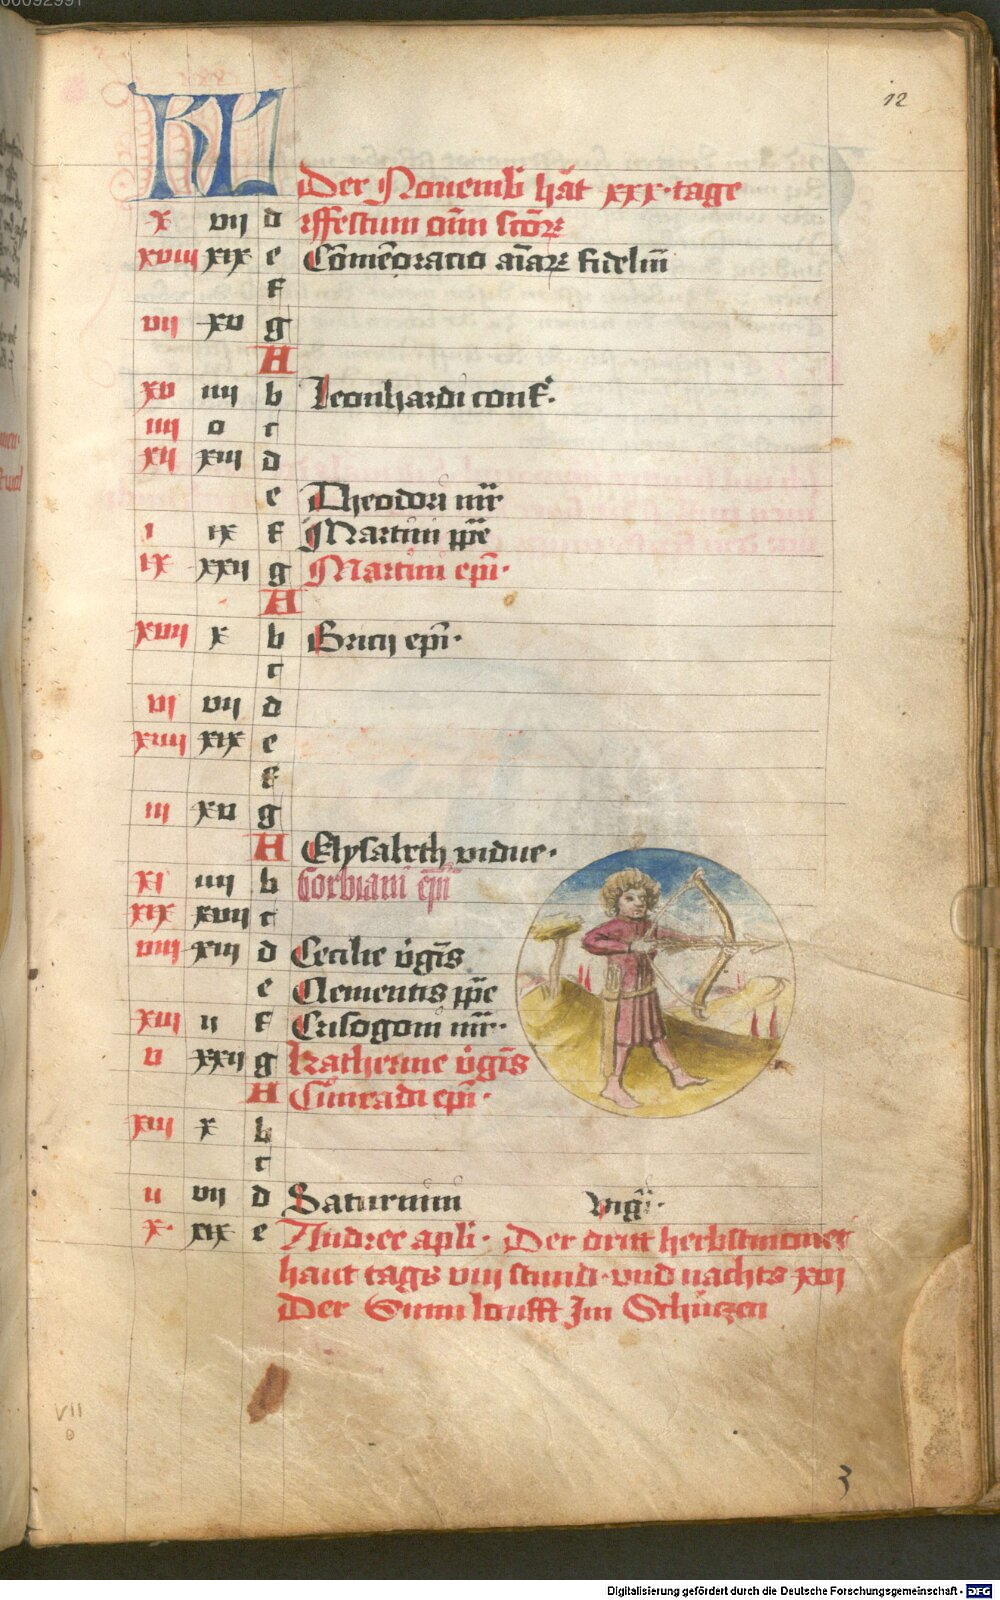 12
KL
Der Novemb hat xxx tage
x vii d ffestum om̄ scōꝝ
xviii xix e Cōmēoracio aīaꝝ fideliū
f
vii xv g
A
xv iiii b Leonhardi conf.
iiii o c
xii xiii d
e Theodori mr̄
i ix f Martini pp̄e
ix xxii g Martini epī
A
xvii x b Bricij epī
c
vi vii d
xiiii xix e
f
iii xv g
A Elysabeth vidue
xi iiii b Corbiani ep̄i
xix xviii c
viii xiii d Cecilie v̄gīs
e Clementis pp̄e
xvi ii f Crisogoni mr̄
v xxii g Katherine v̄gīs
A Cūnradi epī
xiii x b
c
ii vii d Saturnini vigi
x xix e Andree apli. Der dritt herbstmonet
haut tags viii stund vnd nachts xvi
Der Sunn loufft Jm Schüczen
VII
3
Digitalisierung gefördert durch die Deutsche Forschungsgemeinschaft - DFG